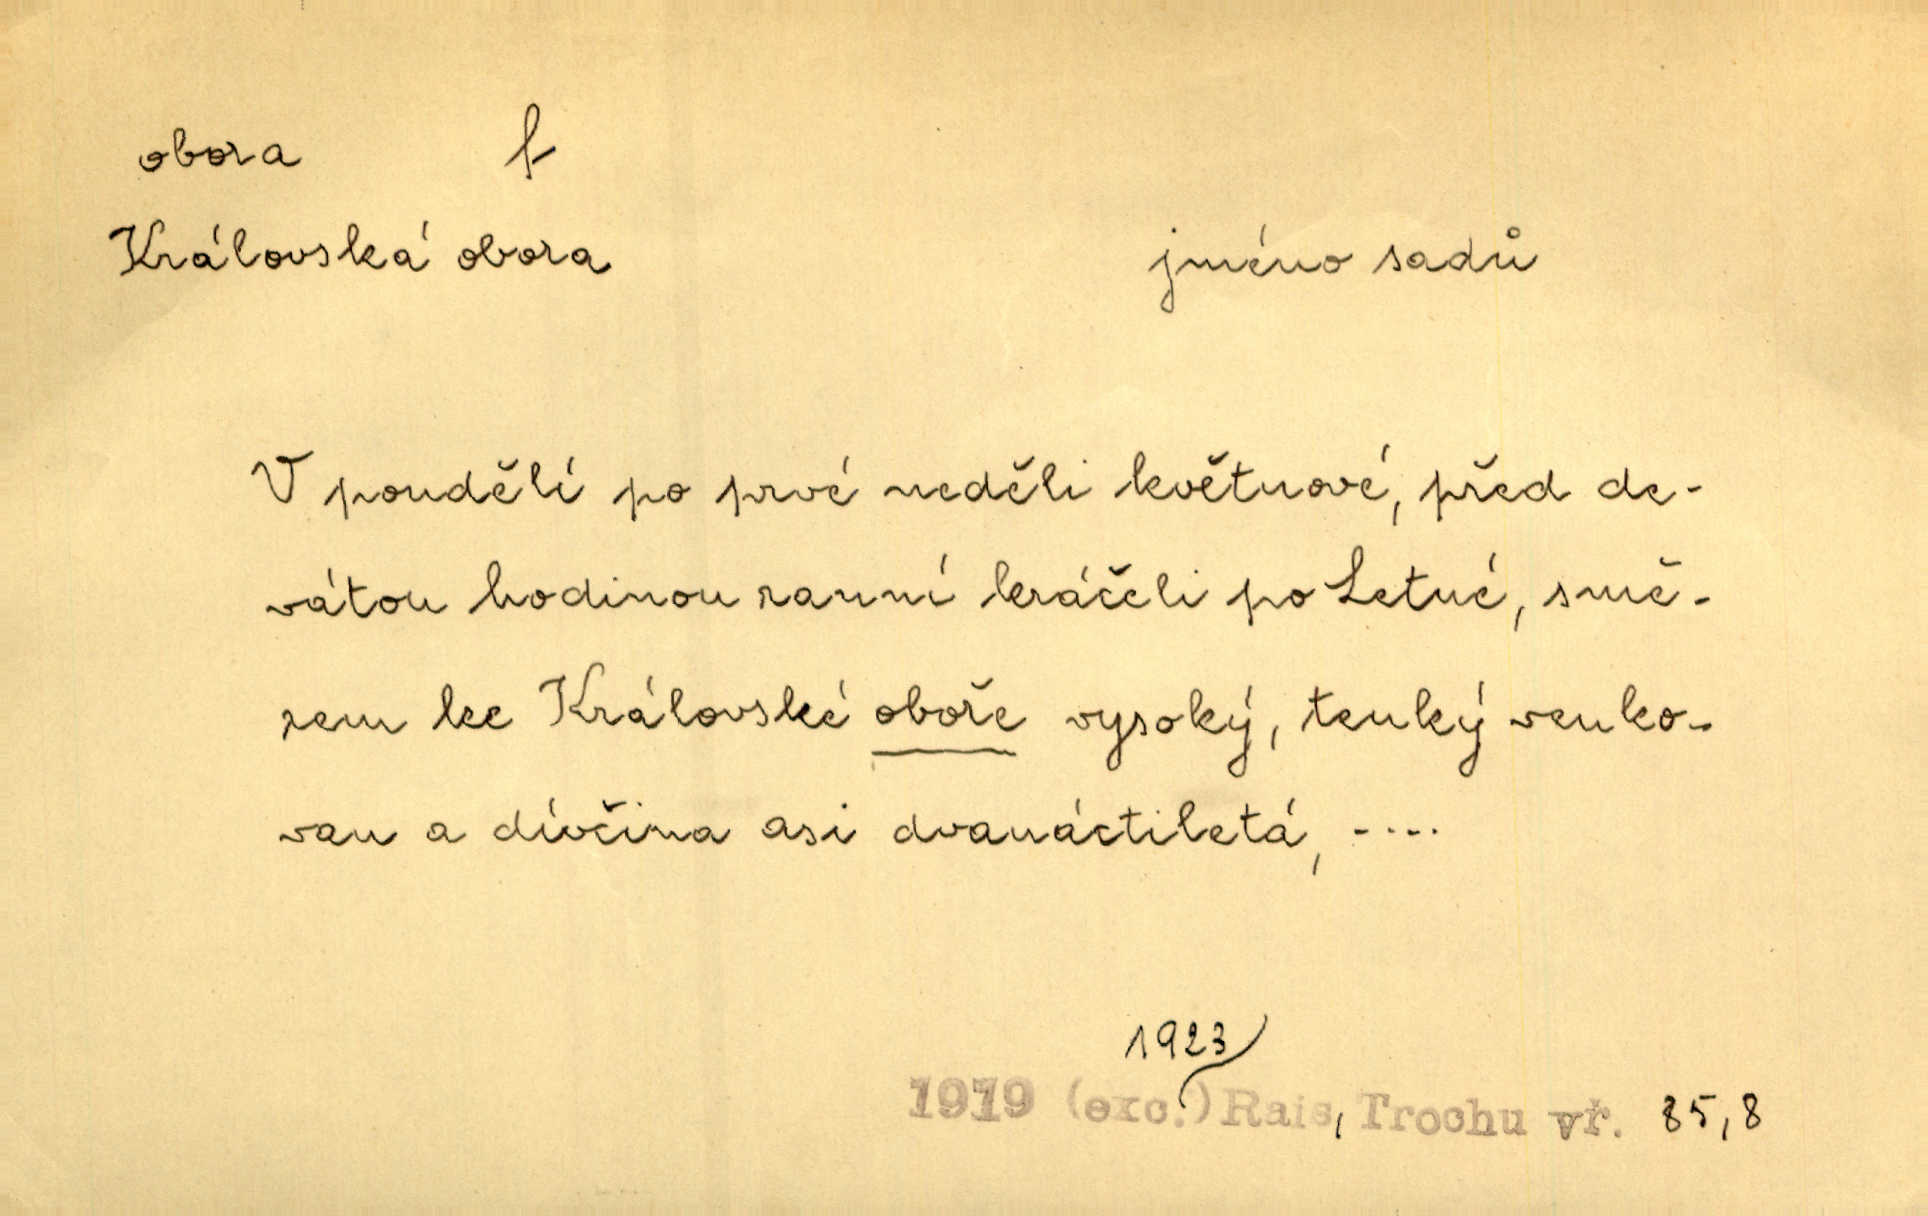 obora f
Královská obora jméno sadů
V pondělí po prvé neděli květnové, před de-
vátou hodinou ranní kráčeli po Letné, smě-
rem ke Královské oboře vysoký, tenký venko-
van a dívčina asi dvanáctiletá, ....
1923
1919 (exc.) Rais, Trochu vř. 85,8